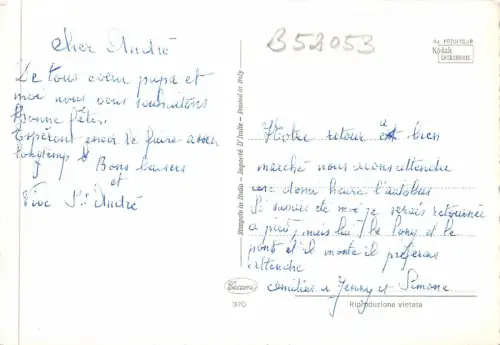 Cher André
De tous coeur papa et
moi nous vous souhaitons
Bonne fête.
Espéront encor le faire assez
longtemp
Bons baisers
et
Vive St André
B52053
da FOTOCOLOR
Kodak
EKTACHROME
Stampato in Italia - Imprimé D'Italie - Printed in Italy
Notre retour est bien
marché nous avons attendre
une demi heure l'autobus
Si savais de moi je serais retournée
a pied, mais le long d le
pont et il monte il préferais
attendre
amitiés Jenny et Simone
Cecami
370
Riproduzione vietata